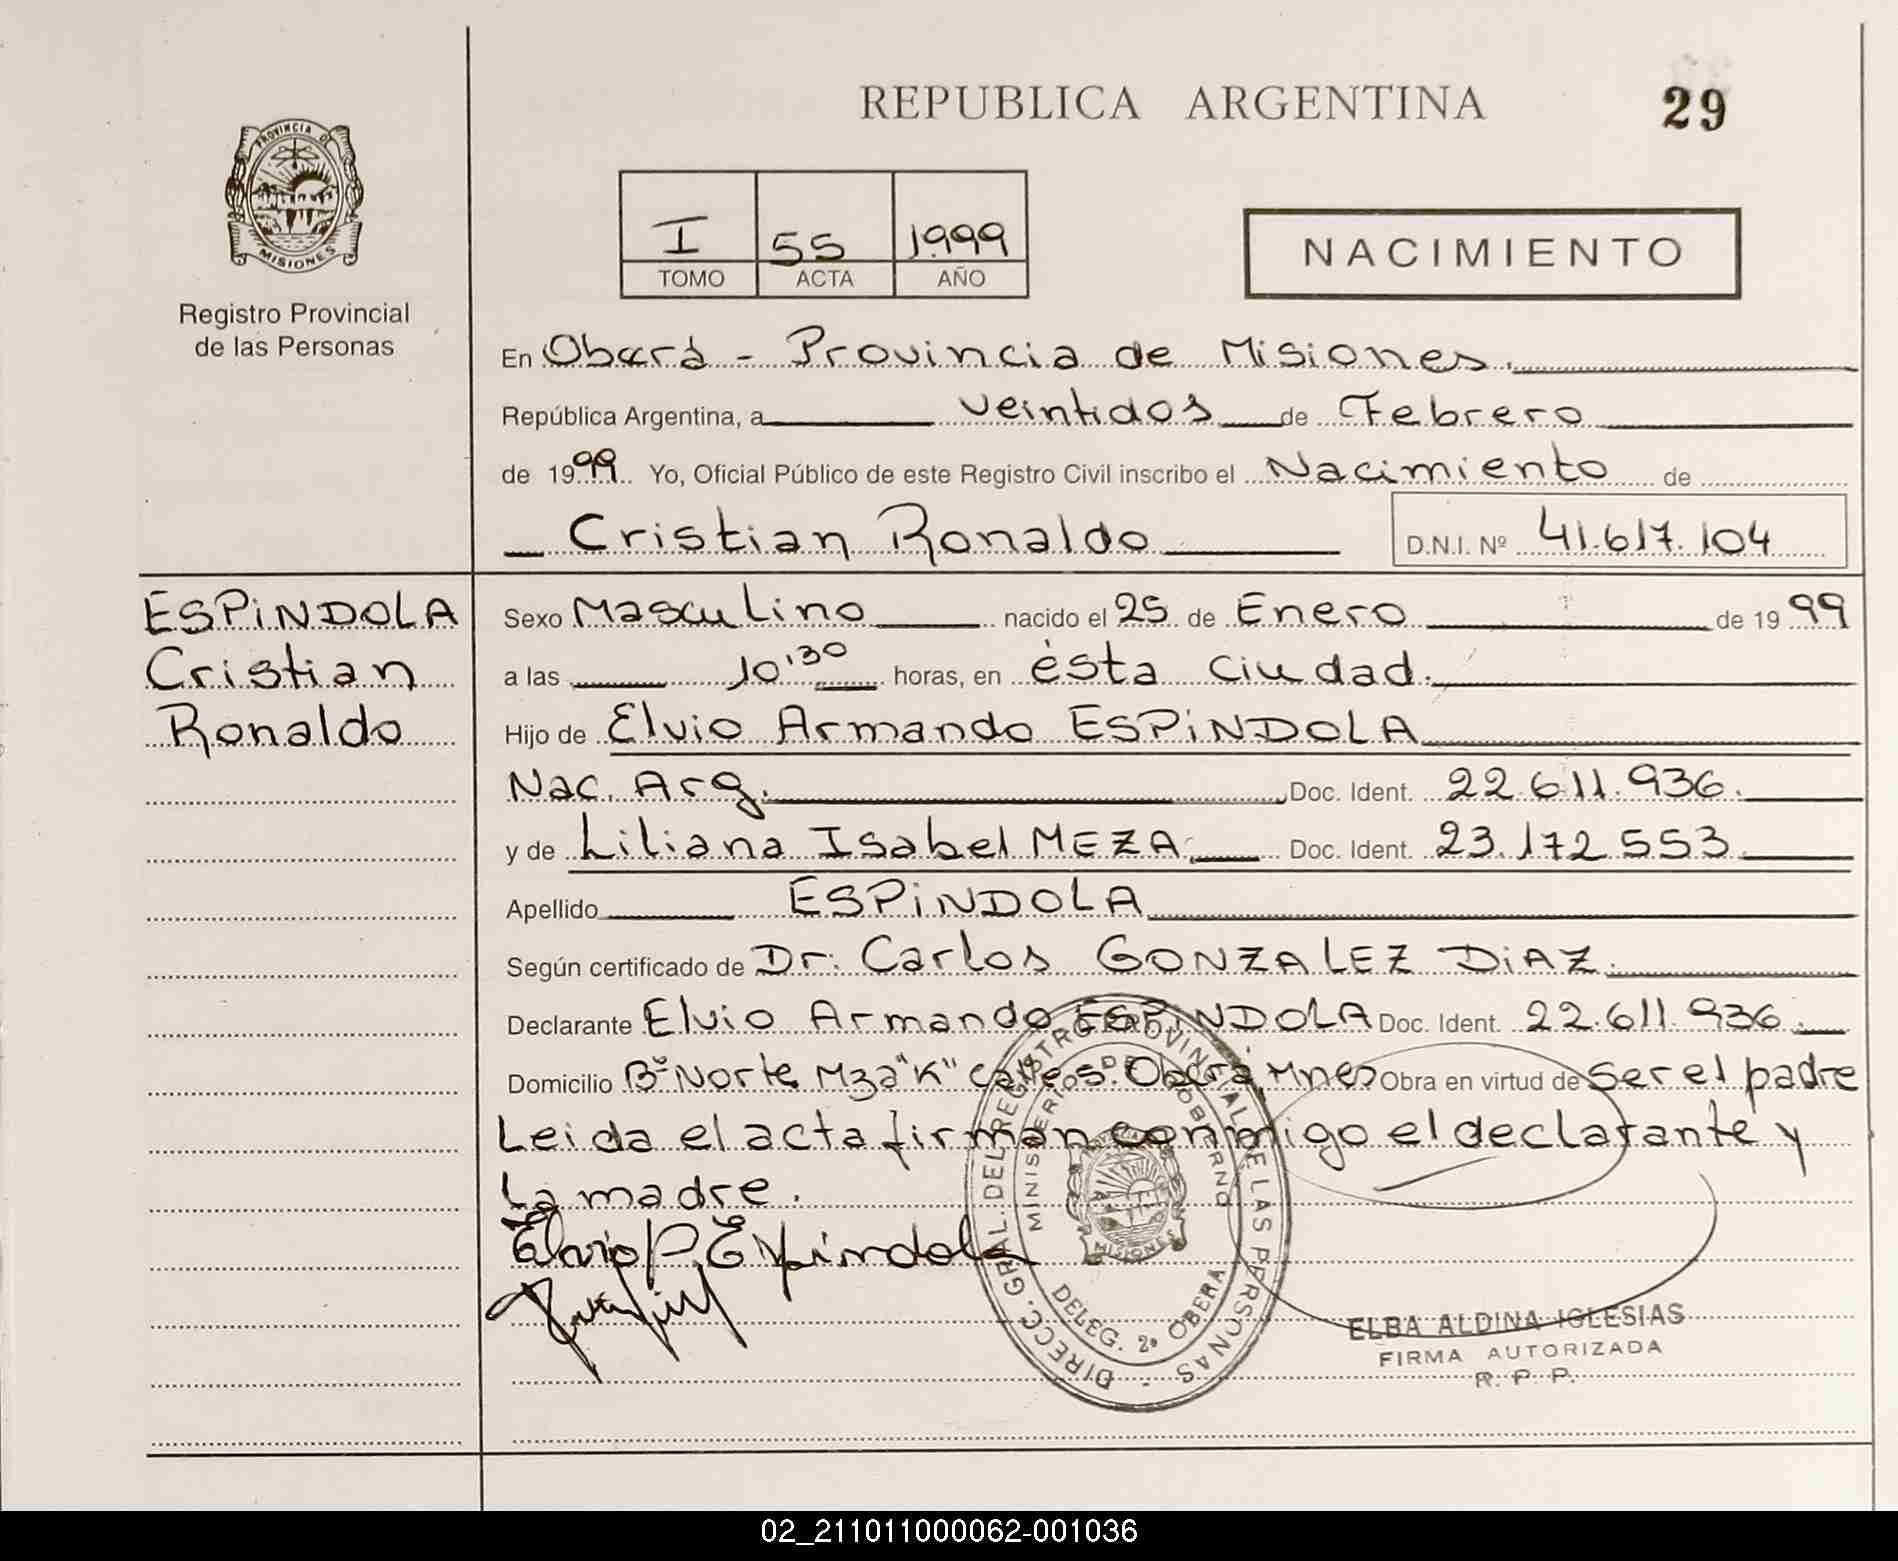 REPUBLICA ARGENTINA
29
PROVINCIA DE
MISIONES
Registro Provincial
de las Personas
I 55 1999
TOMO ACTA AÑO
NACIMIENTO
En Oberá - Provincia de Misiones.
República Argentina, a veintidos de Febrero
de 1999. Yo, Oficial Público de este Registro Civil inscribo el Nacimiento de
Cristian Ronaldo
D.N.I. Nº 41.617.104
ESPiNDOLA
Cristian
Ronaldo
Sexo Masculino nacido el 25 de Enero de 1999
a las 10,30 horas, en ésta ciudad.
Hijo de Elvio Armando ESPiNDOLA
Nac. Arg. Doc. Ident. 22.611.936.
y de Liliana Isabel MEZA. Doc. Ident. 23.172.553
Apellido ESPiNDOLA
Según certificado de Dr. Carlos GONZALEZ DiAZ.
Declarante Elvio Armando ESPiNDOLA Doc. Ident. 22.611.936.
Domicilio Bº Norte Mza "K" Oberá, Mnes Obra en virtud de ser el padre
Leida el acta firman conmigo el declarante y
la madre.
Elvio Espindola
DIRECC. GRAL. DEL REGISTRO PROVINCIAL DE LAS PERSONAS -
MINISTERIO DE GOBIERNO
MISIONES
DELEG. 2ª OBERA
ELBA ALDINA IGLESIAS
FIRMA AUTORIZADA
R. P. P.
02_211011000062-001036